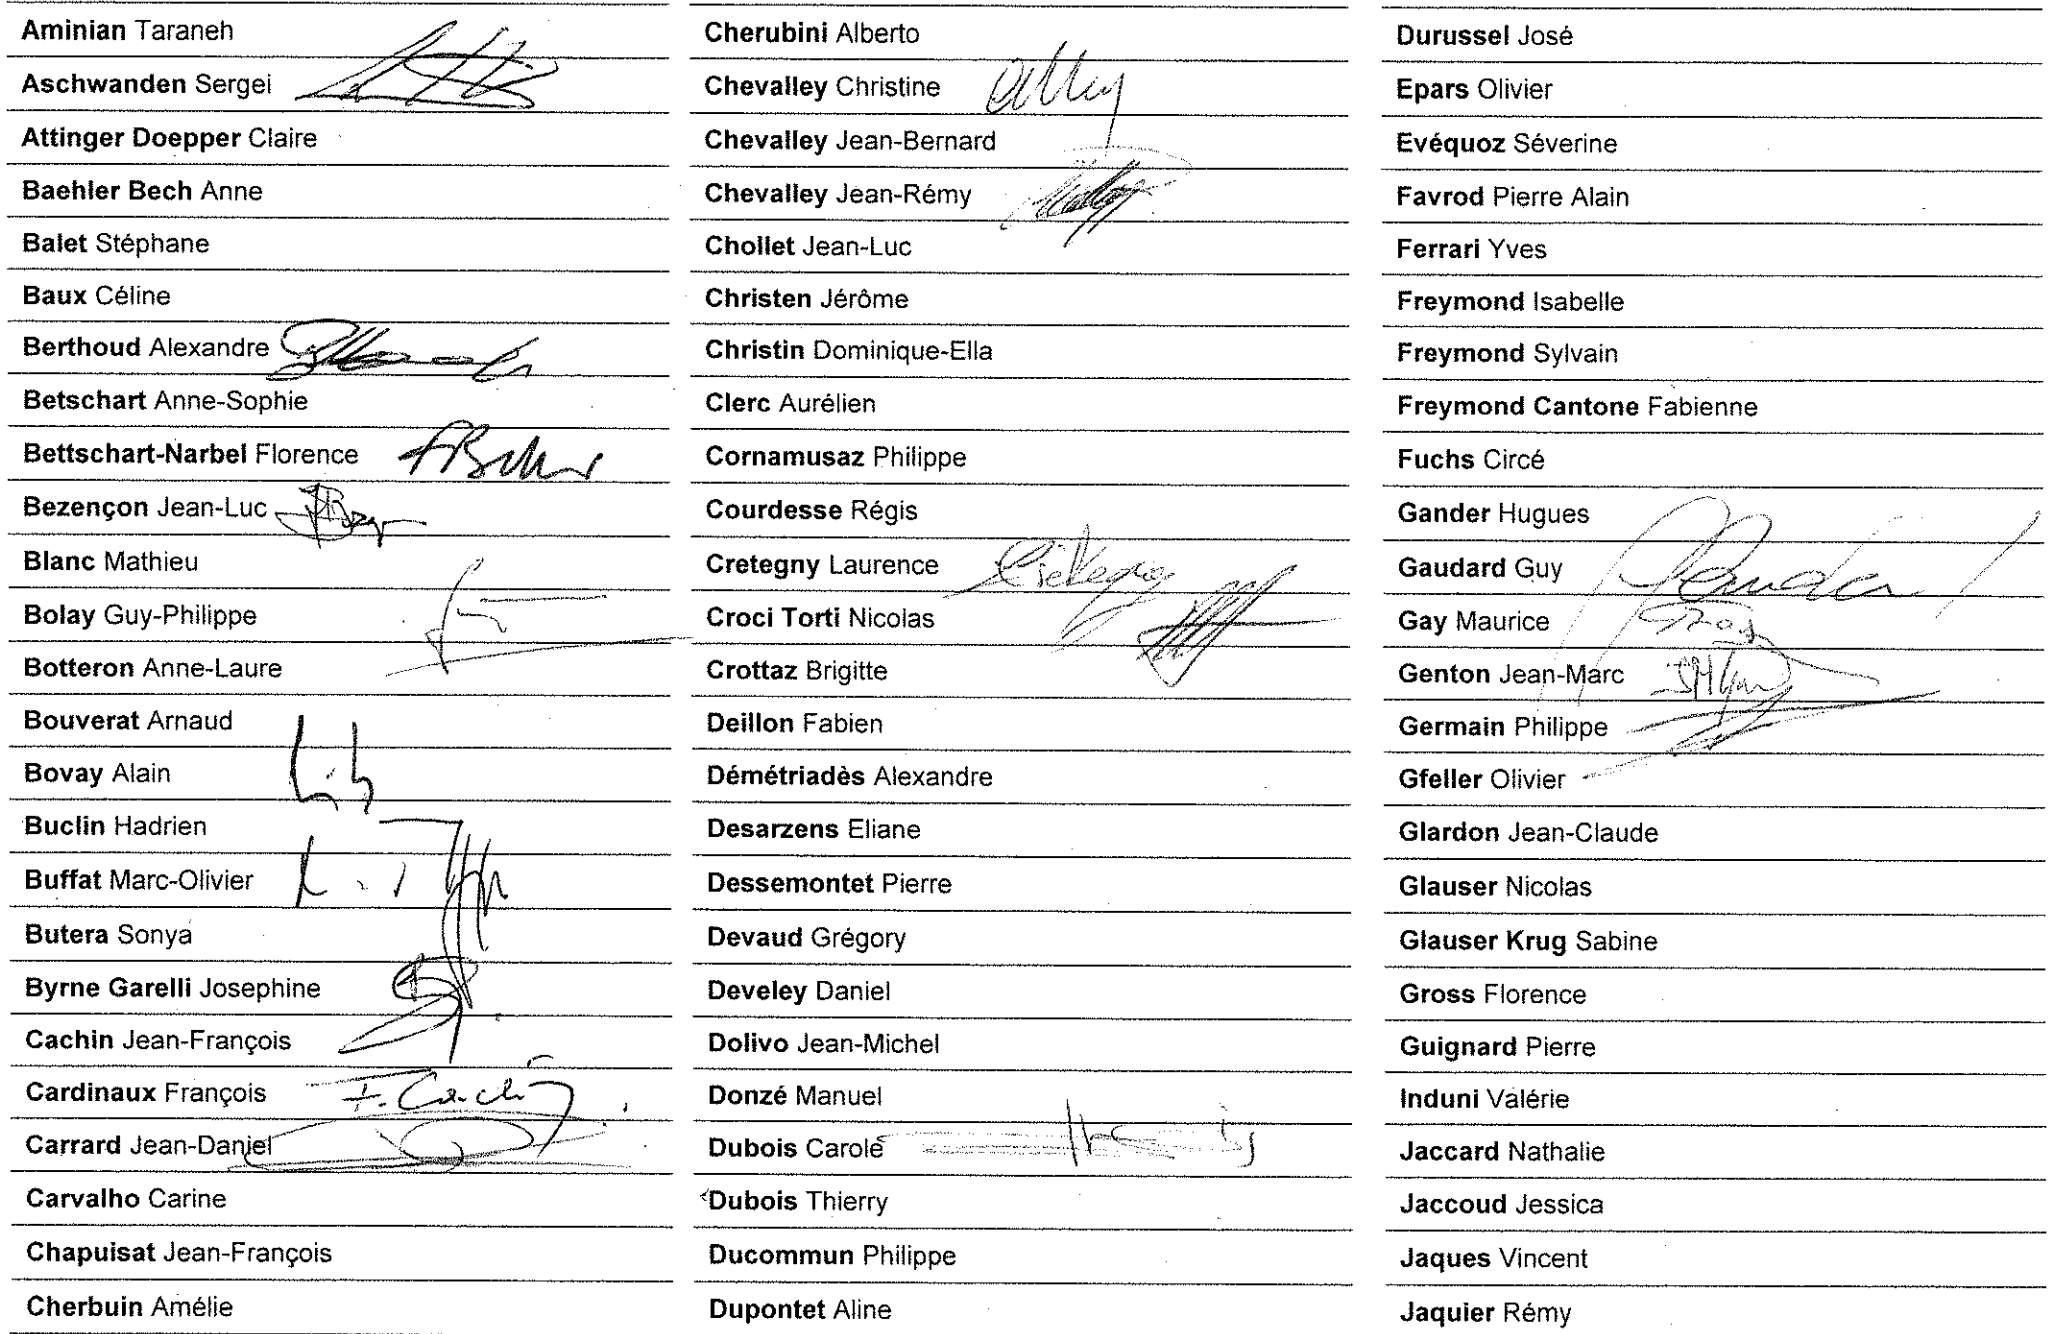 Aminian Taraneh
Aschwanden Sergei
Attinger Doepper Claire
Baehler Bech Anne
Balet Stéphane
Baux Céline
Berthoud Alexandre
Betschart Anne-Sophie
Bettschart-Narbel Florence
Bezençon Jean-Luc
Blanc Mathieu
Bolay Guy-Philippe
Botteron Anne-Laure
Bouverat Arnaud
Bovay Alain
Buclin Hadrien
Buffat Marc-Olivier
Butera Sonya
Byrne Garelli Josephine
Cachin Jean-François
Cardinaux François
F. Cardin
Carrard Jean-Daniel
Carvalho Carine
Chapuisat Jean-François
Cherbuin Amélie
Cherubini Alberto
Chevalley Christine
Chevalley Jean-Bernard
Chevalley Jean-Rémy
Chollet Jean-Luc
Christen Jérôme
Christin Dominique-Ella
Clerc Aurélien
Cornamusaz Philippe
Courdesse Régis
Cretegny Laurence
Cretegny
Croci Torti Nicolas
Crottaz Brigitte
Deillon Fabien
Démétriadès Alexandre
Desarzens Eliane
Dessemontet Pierre
Devaud Grégory
Develey Daniel
Dolivo Jean-Michel
Donzé Manuel
Dubois Carole
Dubois Thierry
Ducommun Philippe
Dupontet Aline
Durussel José
Epars Olivier
Evéquoz Séverine
Favrod Pierre Alain
Ferrari Yves
Freymond Isabelle
Freymond Sylvain
Freymond Cantone Fabienne
Fuchs Circé
Gander Hugues
Gaudard Guy
Gay Maurice
Genton Jean-Marc
Germain Philippe
Gfeller Olivier
Glardon Jean-Claude
Glauser Nicolas
Glauser Krug Sabine
Gross Florence
Guignard Pierre
Induni Valérie
Jaccard Nathalie
Jaccoud Jessica
Jaques Vincent
Jaquier Rémy